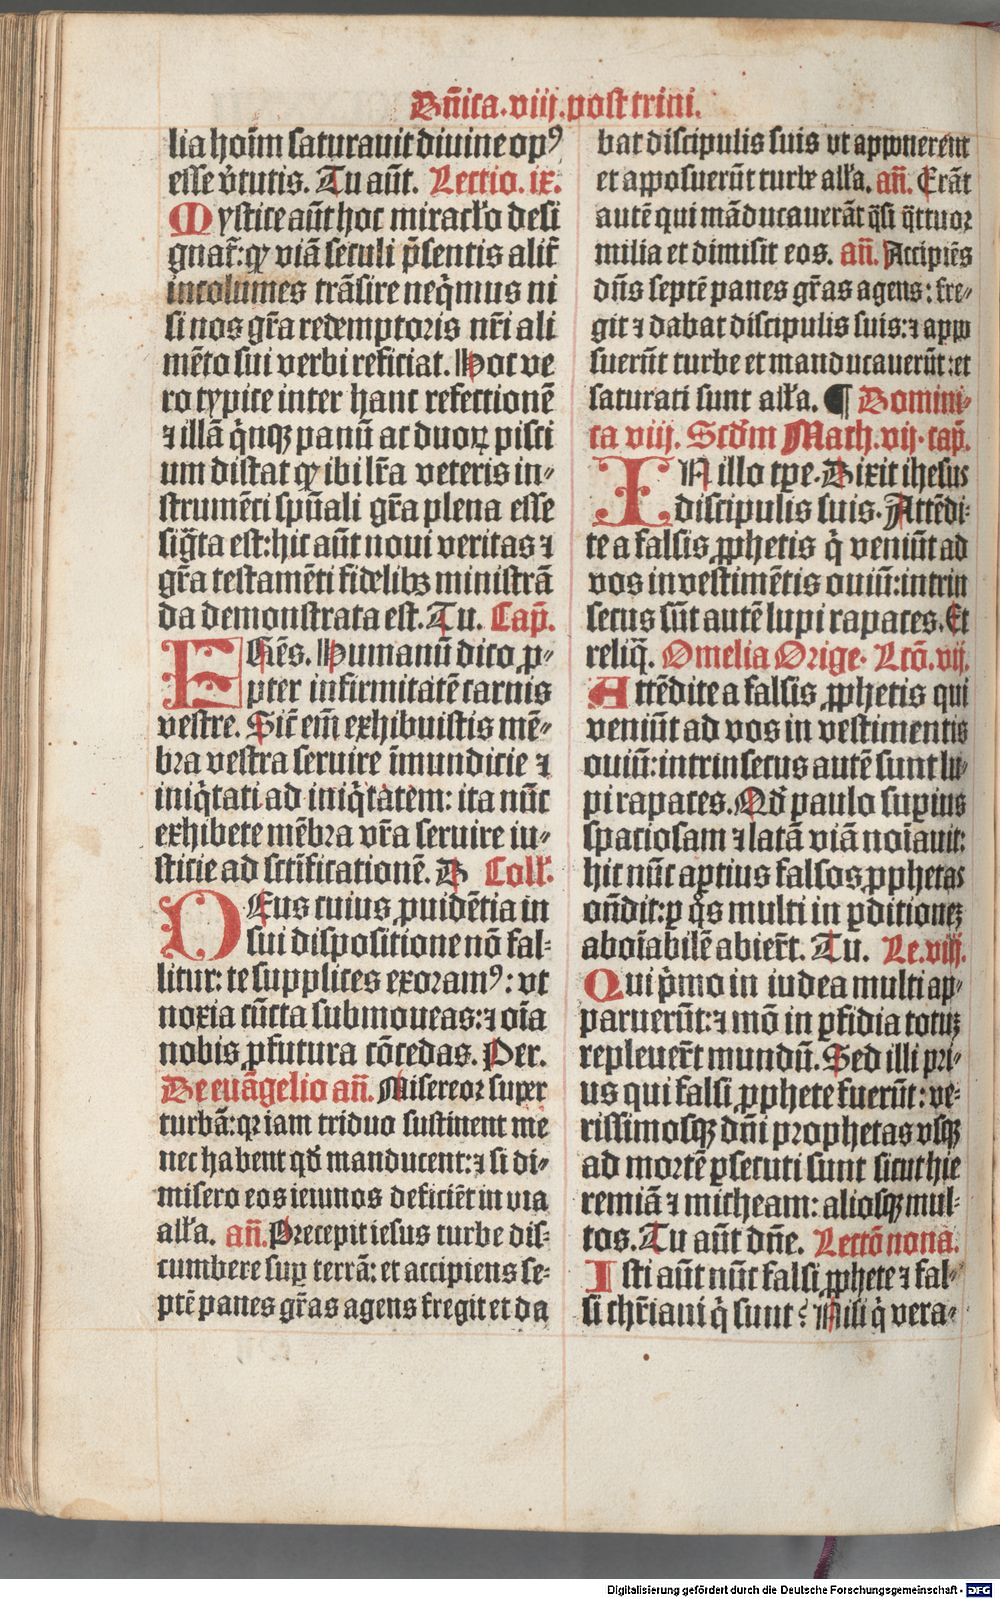 Dñica.viij.post trini.
lia hoīm saturauit diuine opꝰ
esse v̓tutis. Tu aūt. Lectio. ix.
Mystice aūt hoc miraclo desi
gnat̄: qꝫ viā seculi p̄sentis alit̄
incolumes trāsire neq̄mus ni
si nos gr̄a redemptoris nr̄i ali
mēto sui verbi reficiat. Hoc ve
ro typice inter hanc refectionē
⁊ illā q̄nqꝫ panū ac duoꝝ pisci
um distat qꝫ ibi lr̄a veteris in-
strumēti spūali gr̄a plena esse
sigͣta est: hic aūt noui veritas ⁊
gr̄a testamēti fidelibꝫ ministrā
da demonstrata est. Tu. Cap̄.
FRēs. Humanū dico ꝓ-
pter infirmitatē carnis
vestre. Sic̄ em̄ exhibuistis mē-
bra vestra seruire īmundicie ⁊
iniq̄tati ad iniq̄tatem: ita nūc
exhibete mēbra vr̄a seruire iu-
sticie ad sctīficationē. D Coll̄.
DEus cuius ꝓuidētia in
sui dispositione nō fal-
litur: te supplices exoramꝰ: vt
noxia cūcta submoueas: ⁊ oīa
nobis ꝓfutura cōcedas. Per.
De euāgelio an̄. Misereor super
turbā: qꝛ iam triduo sustinent me
nec habent qd̄ manducent: ⁊ si di-
misero eos ieiunos deficiēt in via
alla. an̄. Precepit iesus turbe dis-
cumbere suꝑ terrā: et accipiens se-
ptē panes gr̄as agens fregit et da
bat discipulis suis vt apponerent
et apposuerūt turbe alla. an̄. Erāt
autē qui māducauerāt q̄si q̄ttuor
milia et dimisit eos. an̄. Accipiēs
dn̄s septē panes gr̄as agens: fre-
git ⁊ dabat discipulis suis: ⁊ appo
suerūt turbe et manducauerūt: et
saturati sunt alla. ¶ Domini-
ca viij. Scd̄m Math. vij. cap̄.
IN illo tpe. Dixit ihesus
discipulis suis. Attēdi-
te a falsis ꝓphetis q̄ veniūt ad
vos in vestimētis ouiū: intrin
secus sūt autē lupi rapaces. Et
reliq̄. Omelia Orige. Lcō. vij.
Attēdite a falsis ꝓphetis qui
veniūt ad vos in vestimentis
ouiū: intrinsecus autē sunt lu-
pi rapaces. Qd̄ paulo suꝑius
spaciosam ⁊ latā viā noīauit:
hic nūc aꝑtius falsos ꝓphetas
on̄dit: ꝑ q̄s multi in ꝑditionez
aboīabilē abier̄t. Tu. Le. viij.
Qui p̄mo in iudea multi ap-
paruerūt: ⁊ mō in ꝑfidia totuꝫ
repleuer̄t mundū. Sed illi pri-
us qui falsi ꝓphete fuerūt: ve-
rissimosqꝫ dn̄i prophetas vsqꝫ
ad mortē ꝑsecuti sunt sicut hie
remiā ⁊ micheam: aliosqꝫ mul-
tos. Tu aūt dn̄e. Lectō nona.
Isti aūt nūc falsi ꝓphete ⁊ fal-
si chr̄iani q̄ sunt? Nisi q̄ vera-
Digitalisierung gefördert durch die Deutsche Forschungsgemeinschaft - DFG